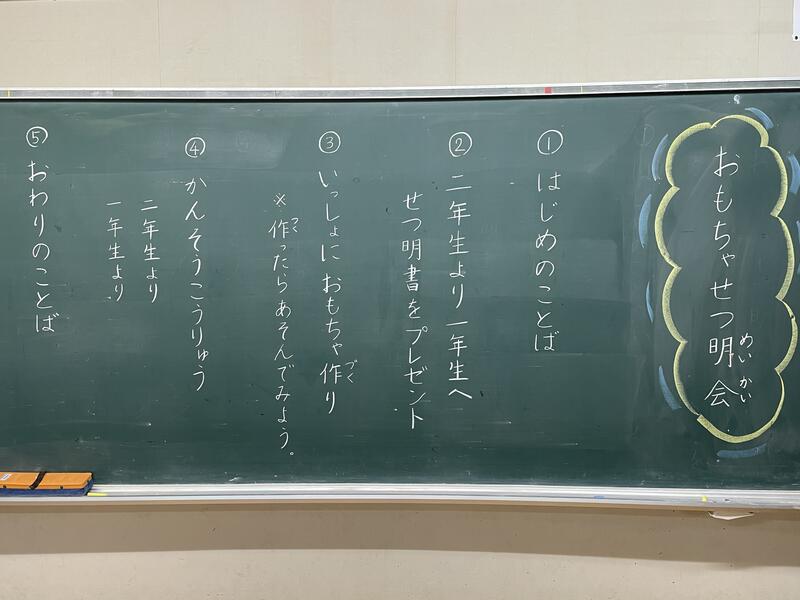 おもちゃせつ明会
めいかい
① はじめのことば
② 二年生より一年生へ
せつ明書をプレゼント
③ いっしょに おもちゃ作り
づく
※作ったらあそんでみよう。
つく
④ かんそうこうりゅう
二年生より
一年生より
⑤ おわりのことば